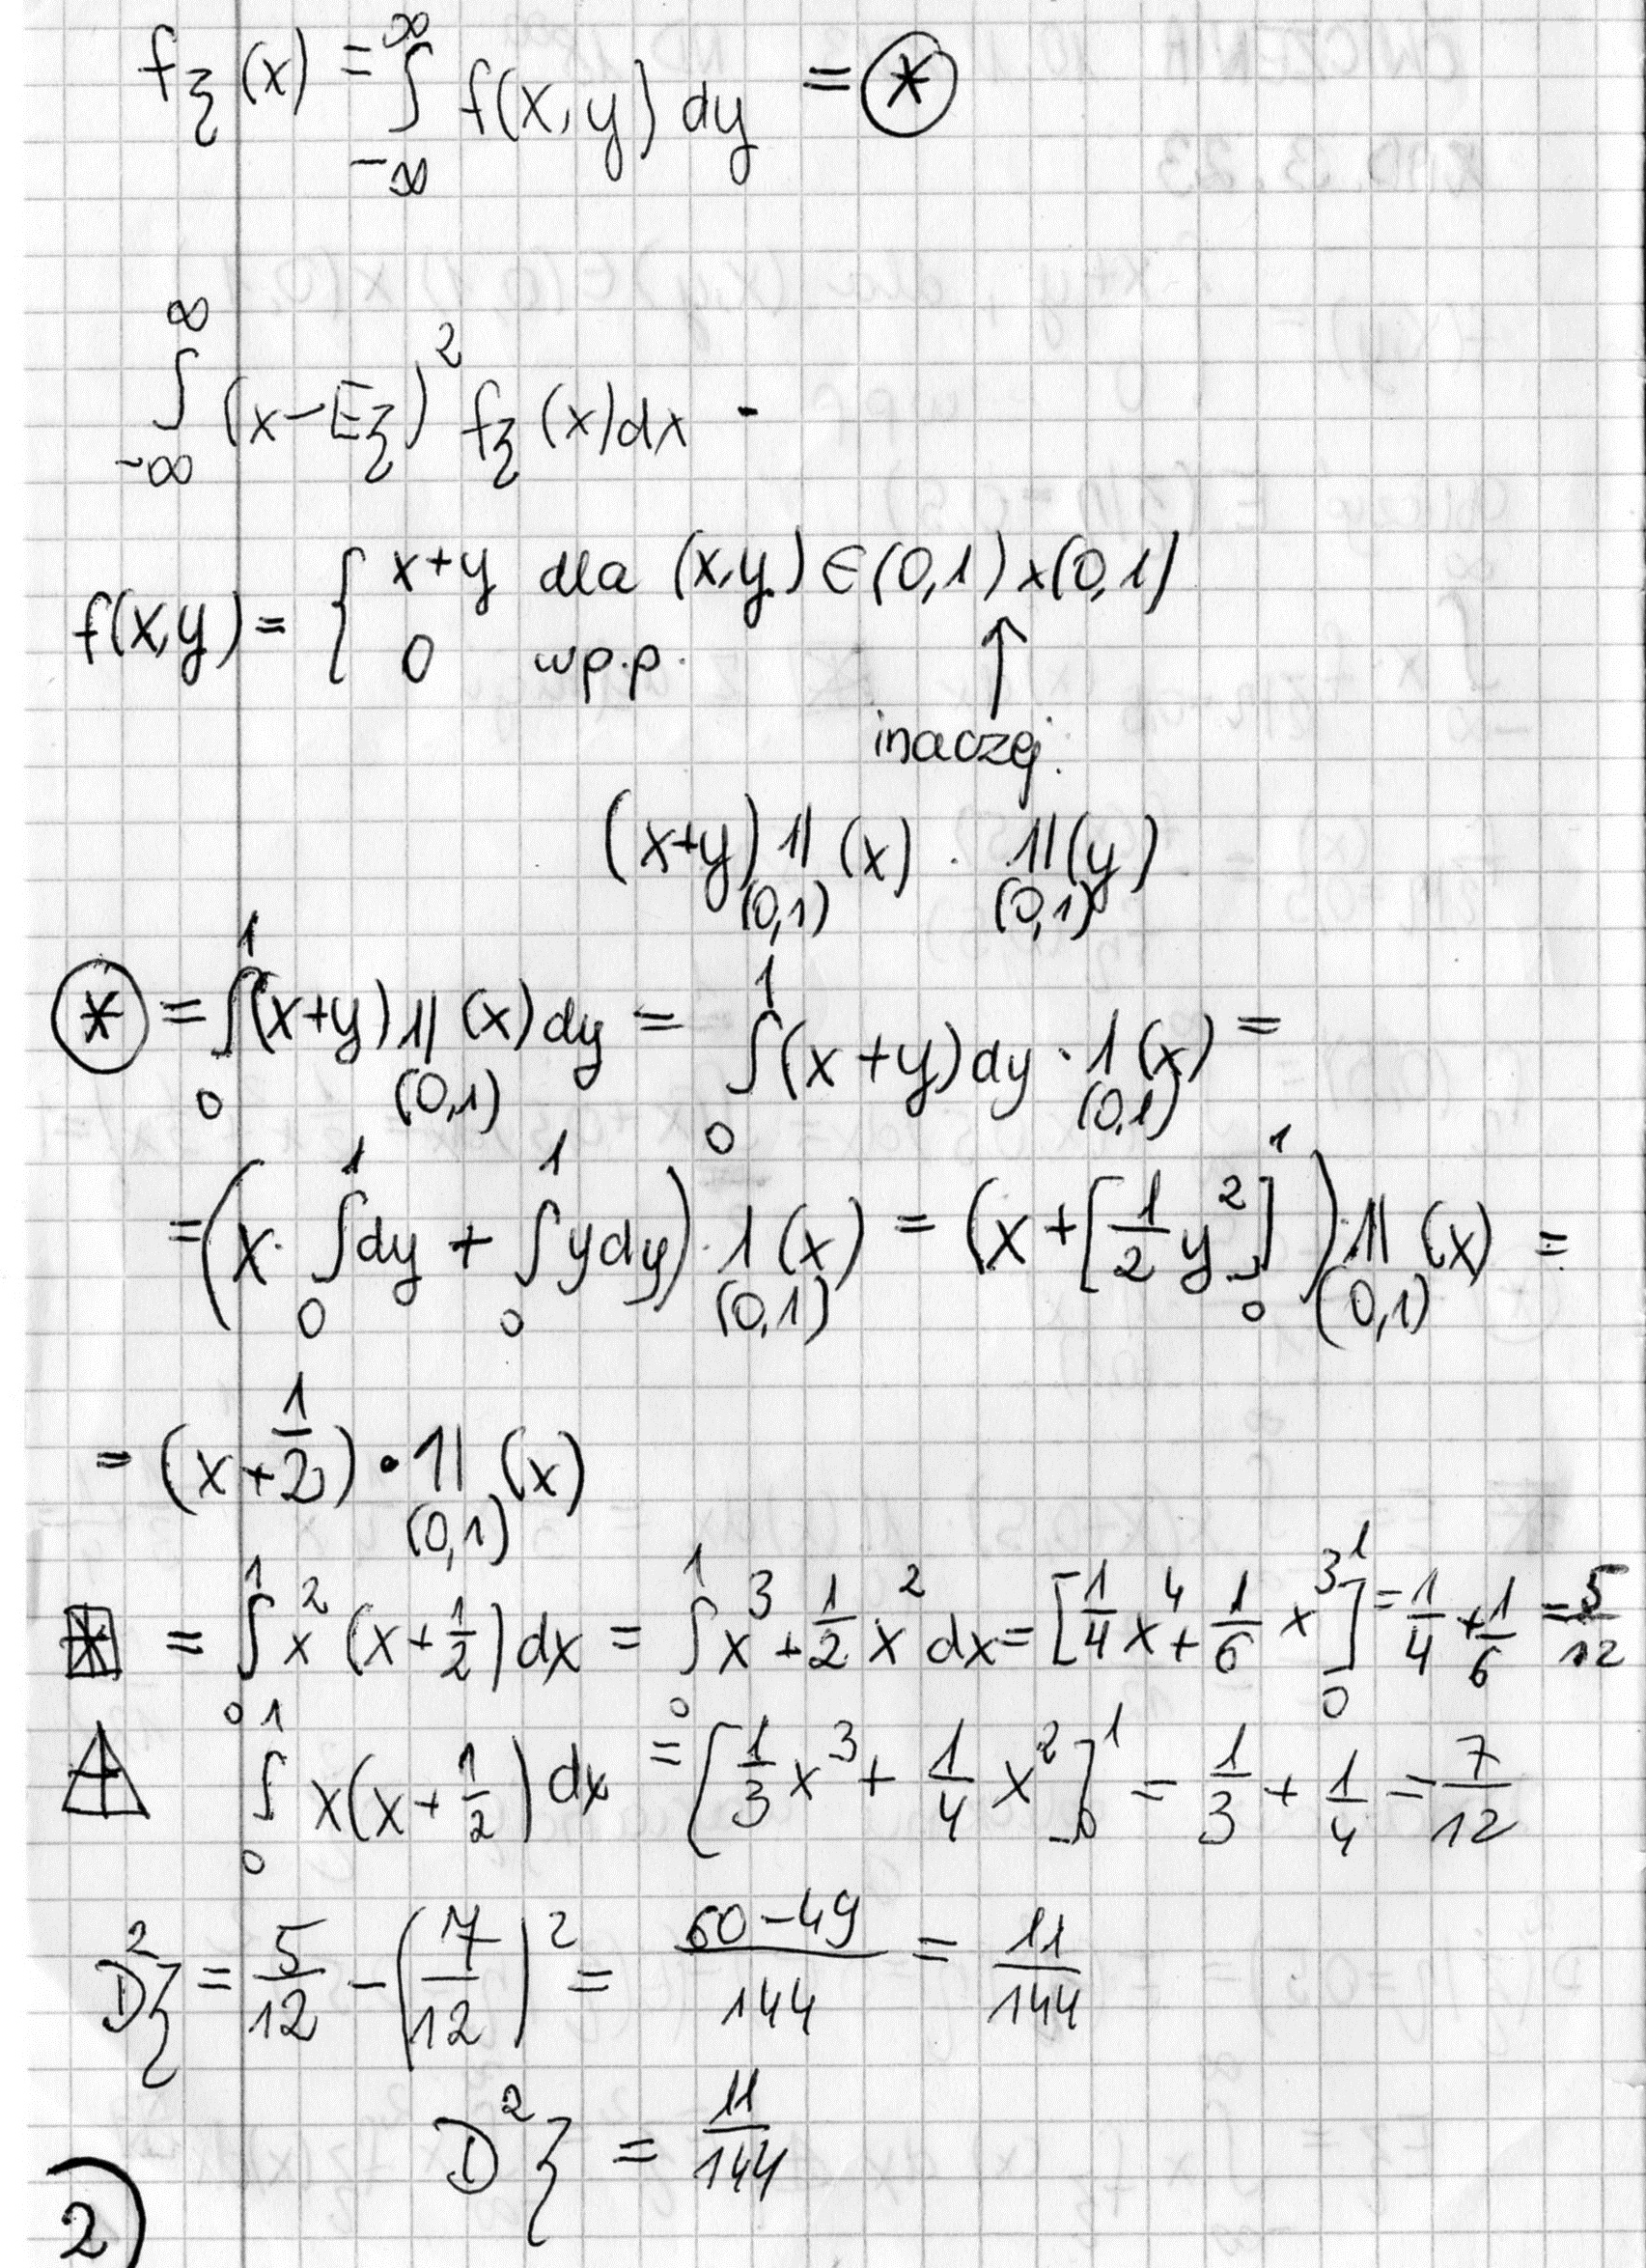 f_ξ(x) = ∫_{-∞}^{∞} f(x,y) dy = ⊛
∫_{-∞}^{∞} (x-Eξ)² f_ξ(x)dx
f(x,y) = { x+y dla (x,y) ∈ (0,1) x (0,1)
0 w p.p.
↑
inaczej.
(x+y) 𝟙_{(0,1)}(x) · 𝟙_{(0,1)}(y)
⊛ = ∫_0^1 (x+y) 𝟙_{(0,1)}(x) dy = ∫_0^1 (x+y)dy · 1_{(0,1)}(x) =
= (x · ∫_0^1 dy + ∫_0^1 y dy) · 1_{(0,1)}(x) = (x + [1/2 y²]_0^1) · 𝟙_{(0,1)}(x) =
= (x + 1/2) · 𝟙_{(0,1)}(x)
⊠ = ∫_0^1 x² (x + 1/2) dx = ∫_0^1 x³ + 1/2 x² dx = [1/4 x⁴ + 1/6 x³]_0^1 = 1/4 + 1/6 = 5/12
△ ∫_0^1 x(x + 1/2) dx = [1/3 x³ + 1/4 x²]_0^1 = 1/3 + 1/4 = 7/12
D²ξ = 5/12 - (7/12)² = (60-49)/144 = 11/144
D²ξ = 11/144
2)